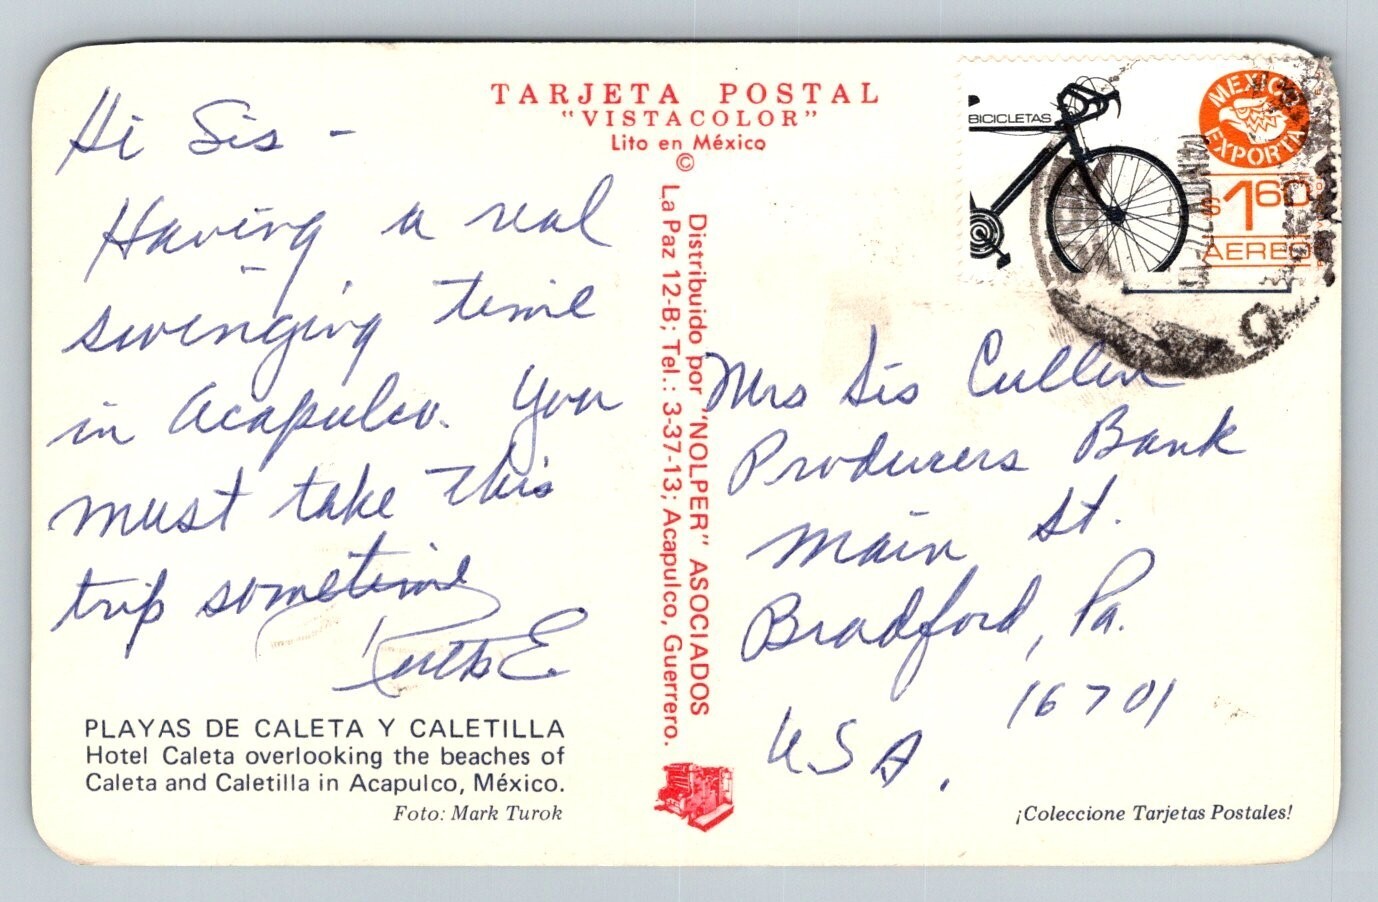 TARJETA POSTAL
"VISTACOLOR"
Lito en México
©
Hi Sis -
Having a real
swinging time
in Acapulco. You
must take this
trip sometime
Ruth E
PLAYAS DE CALETA Y CALETILLA
Hotel Caleta overlooking the beaches of
Caleta and Caletilla in Acapulco, México.
Foto: Mark Turok
Distribuido por "NOLPER" ASOCIADOS
La Paz 12-B; Tel.: 3-37-13; Acapulco, Guerrero.
BICICLETAS
MEXICO
EXPORTA
$160
AEREO
Mrs Sis Cullen
Producers Bank
Main St.
Bradford, Pa.
16701
USA.
¡Coleccione Tarjetas Postales!